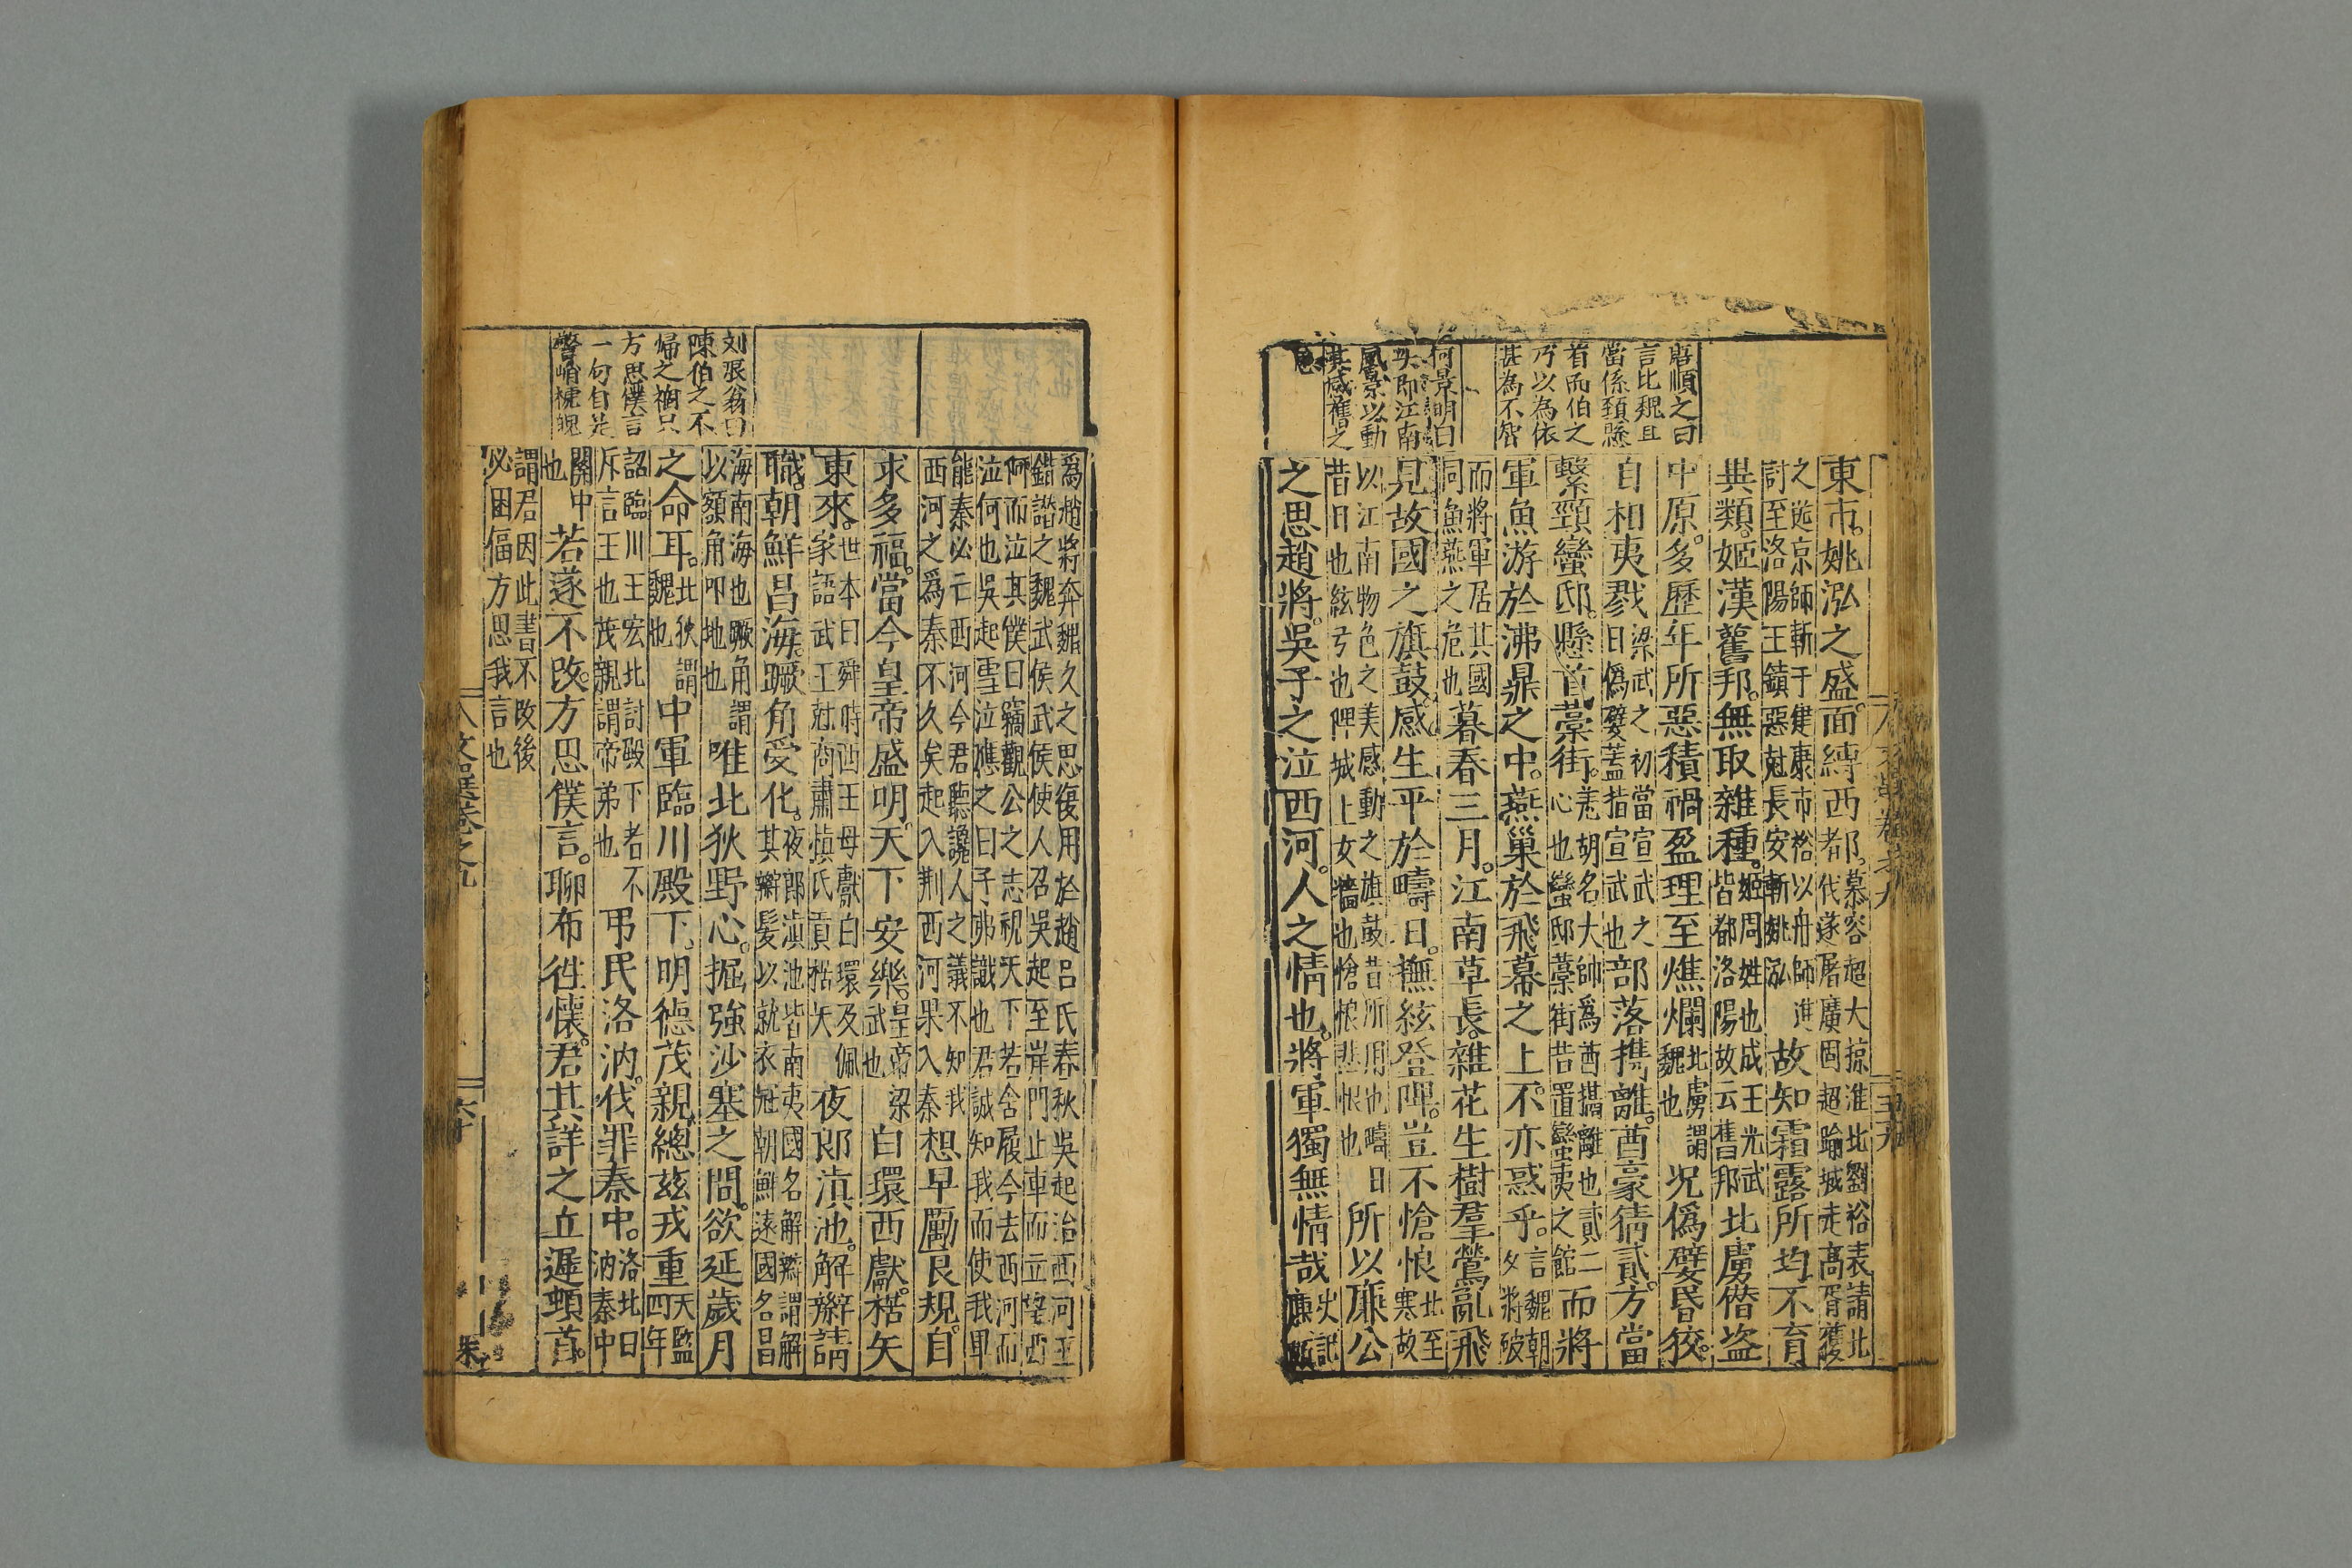 唐順之曰
言比覣且
當係頸懸
首而伯之
乃以為依
甚為不智
何景明曰
只即江南
風景以動
其感舊之
東市。姚泓之盛。面縛西都。慕容超大掠淮北劉裕表請北
伐遂屠廣固超踰城走高胥獲
之送京師斬于建康市裕以舟師進
討至洛陽王鎮惡尅長安斬姚泓
故知霜露所均。不育
異類。姬漢舊邦。無取雜種。姬周姓也成王光武
皆都洛陽故云舊邦
北虜僣盗
中原。多歷年所惡積禍盈理至燋爛北虜謂
魏也
況偽孽昏狡。
自相夷戮梁武之初當宣武之
日偽孽蓋指宣武也
部落攜離。酋豪猜貳。方當
繫頸蠻邸。懸首藁街。羗胡名大帥爲酋攜離也貳二
心也蠻邸藁街昔置蠻夷之館
而將
軍魚游於沸鼎之中。燕巢於飛幕之上。不亦惑乎。言魏朝
夕將破
而將軍居其國
同魚燕之危也
暮春三月。江南草長。雜花生樹羣鶯亂飛
見故國之旗鼓。感生平於疇日。撫絃登陴。豈不愴悢北至
寒故
以江南物色之美感動之旗鼓昔所用也疇日
昔日也絃弓也陴城上女牆也愴悢悲恨也
所以廉公
之思趙將。吳子之泣西河。人之情也。將軍獨無情哉史記
廉頗
刘辰翁曰
陳伯之不
歸之禍只
方思僕言
一句自是
警峭
爲趙將奔魏久之思復用於趙呂氏春秋吳起治西河王
錯譖之魏武侯武侯使人召吳起至岸門止車而立望西
河而泣其僕曰竊觀公之志視天下若舍履今去西河而
泣何也吳起雪泣應之曰子弗識也君誠知我而使我畢
能秦必亡西河今君聽讒人之議不知我
西河之爲秦不久矣起入荆西河果入秦
想早勵良規。自
求多福。當今皇帝盛明。天下安樂。皇帝梁
武也
白環西獻。楛矢
東來。世本曰舜時西王母獻白環及佩
家語武王尅商肅慎氏貢楛矢
夜郎滇池。解辮請
職。朝鮮昌海。蹶角受化。夜郎滇池皆南夷國名解辮謂解
其辮髮以就衣冠朝鮮遠國名昌
海南海也蹶角謂
以額角叩地也
唯北狄野心。掘強沙塞之間。欲延歲月
之命耳。北狄謂
魏也
中軍臨川殿下。明德茂親。總兹戎重天監
四年
詔臨川王宏北討殿下者不
斥言王也茂親謂帝弟也
弔民洛汭。伐罪秦中。洛北曰
汭秦中
關中
也
若遂不改。方思僕言。聊布徃懷。君其詳之丘遲頓首。
謂君因此書不改後
必困偪方思我言也